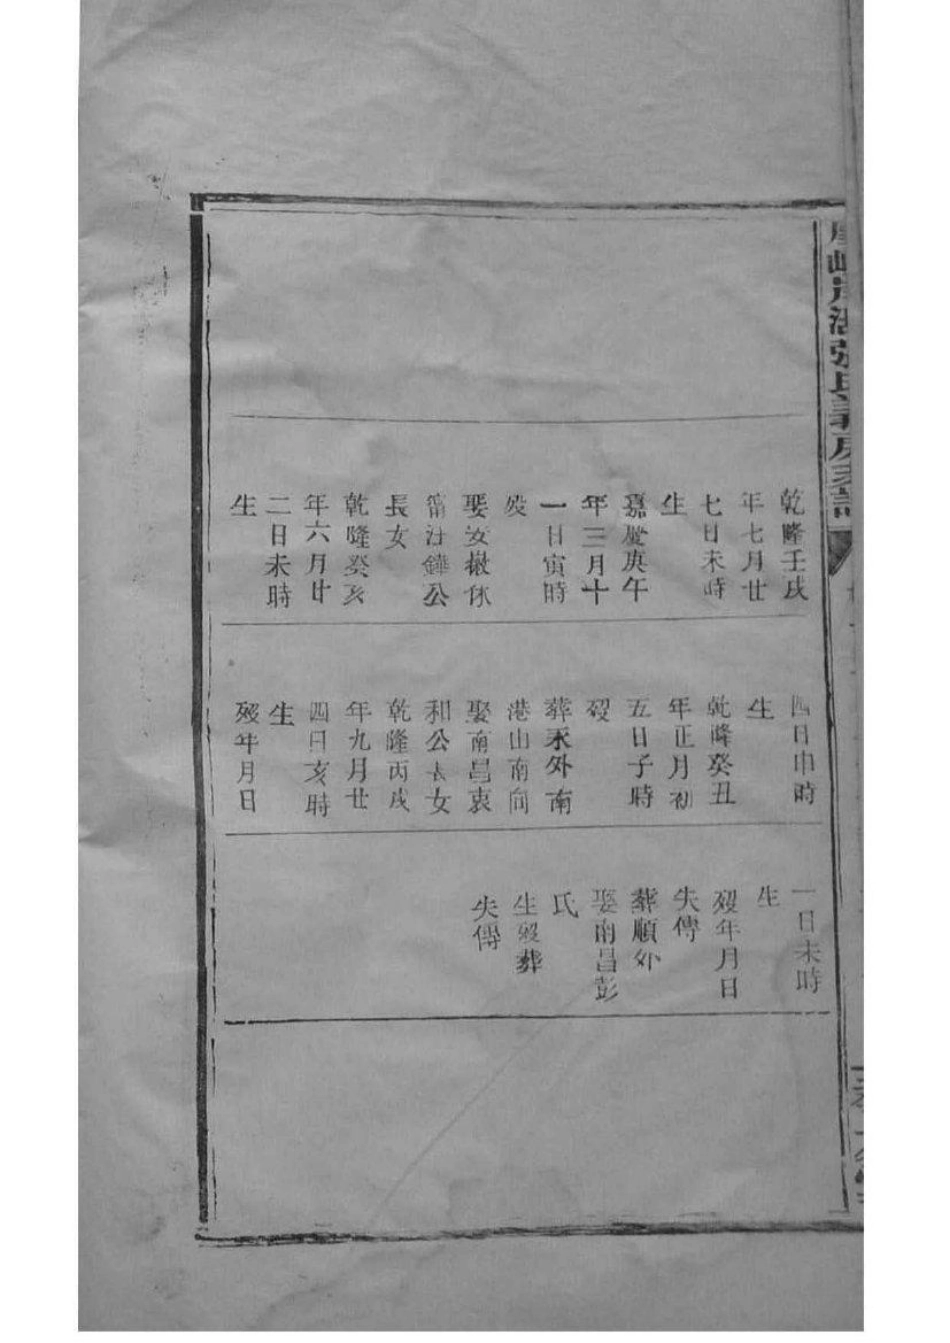 乾隆壬戌
年七月廿
七日未時
生
嘉慶庚午
年三月十
一日寅時
殁
娶安徽休
甯汪鏵公
長女
乾隆癸亥
年六月廿
二日未時
生
四日申時
生
乾隆癸丑
年正月初
五日子時
殁
葬永外南
港山南向
娶南昌袁
和公長女
乾隆丙戌
年九月廿
四日亥時
生
殁年月日
一日未時
生
殁年月日
失傳
葬順外
娶南昌彭
氏
生殁葬
失傳